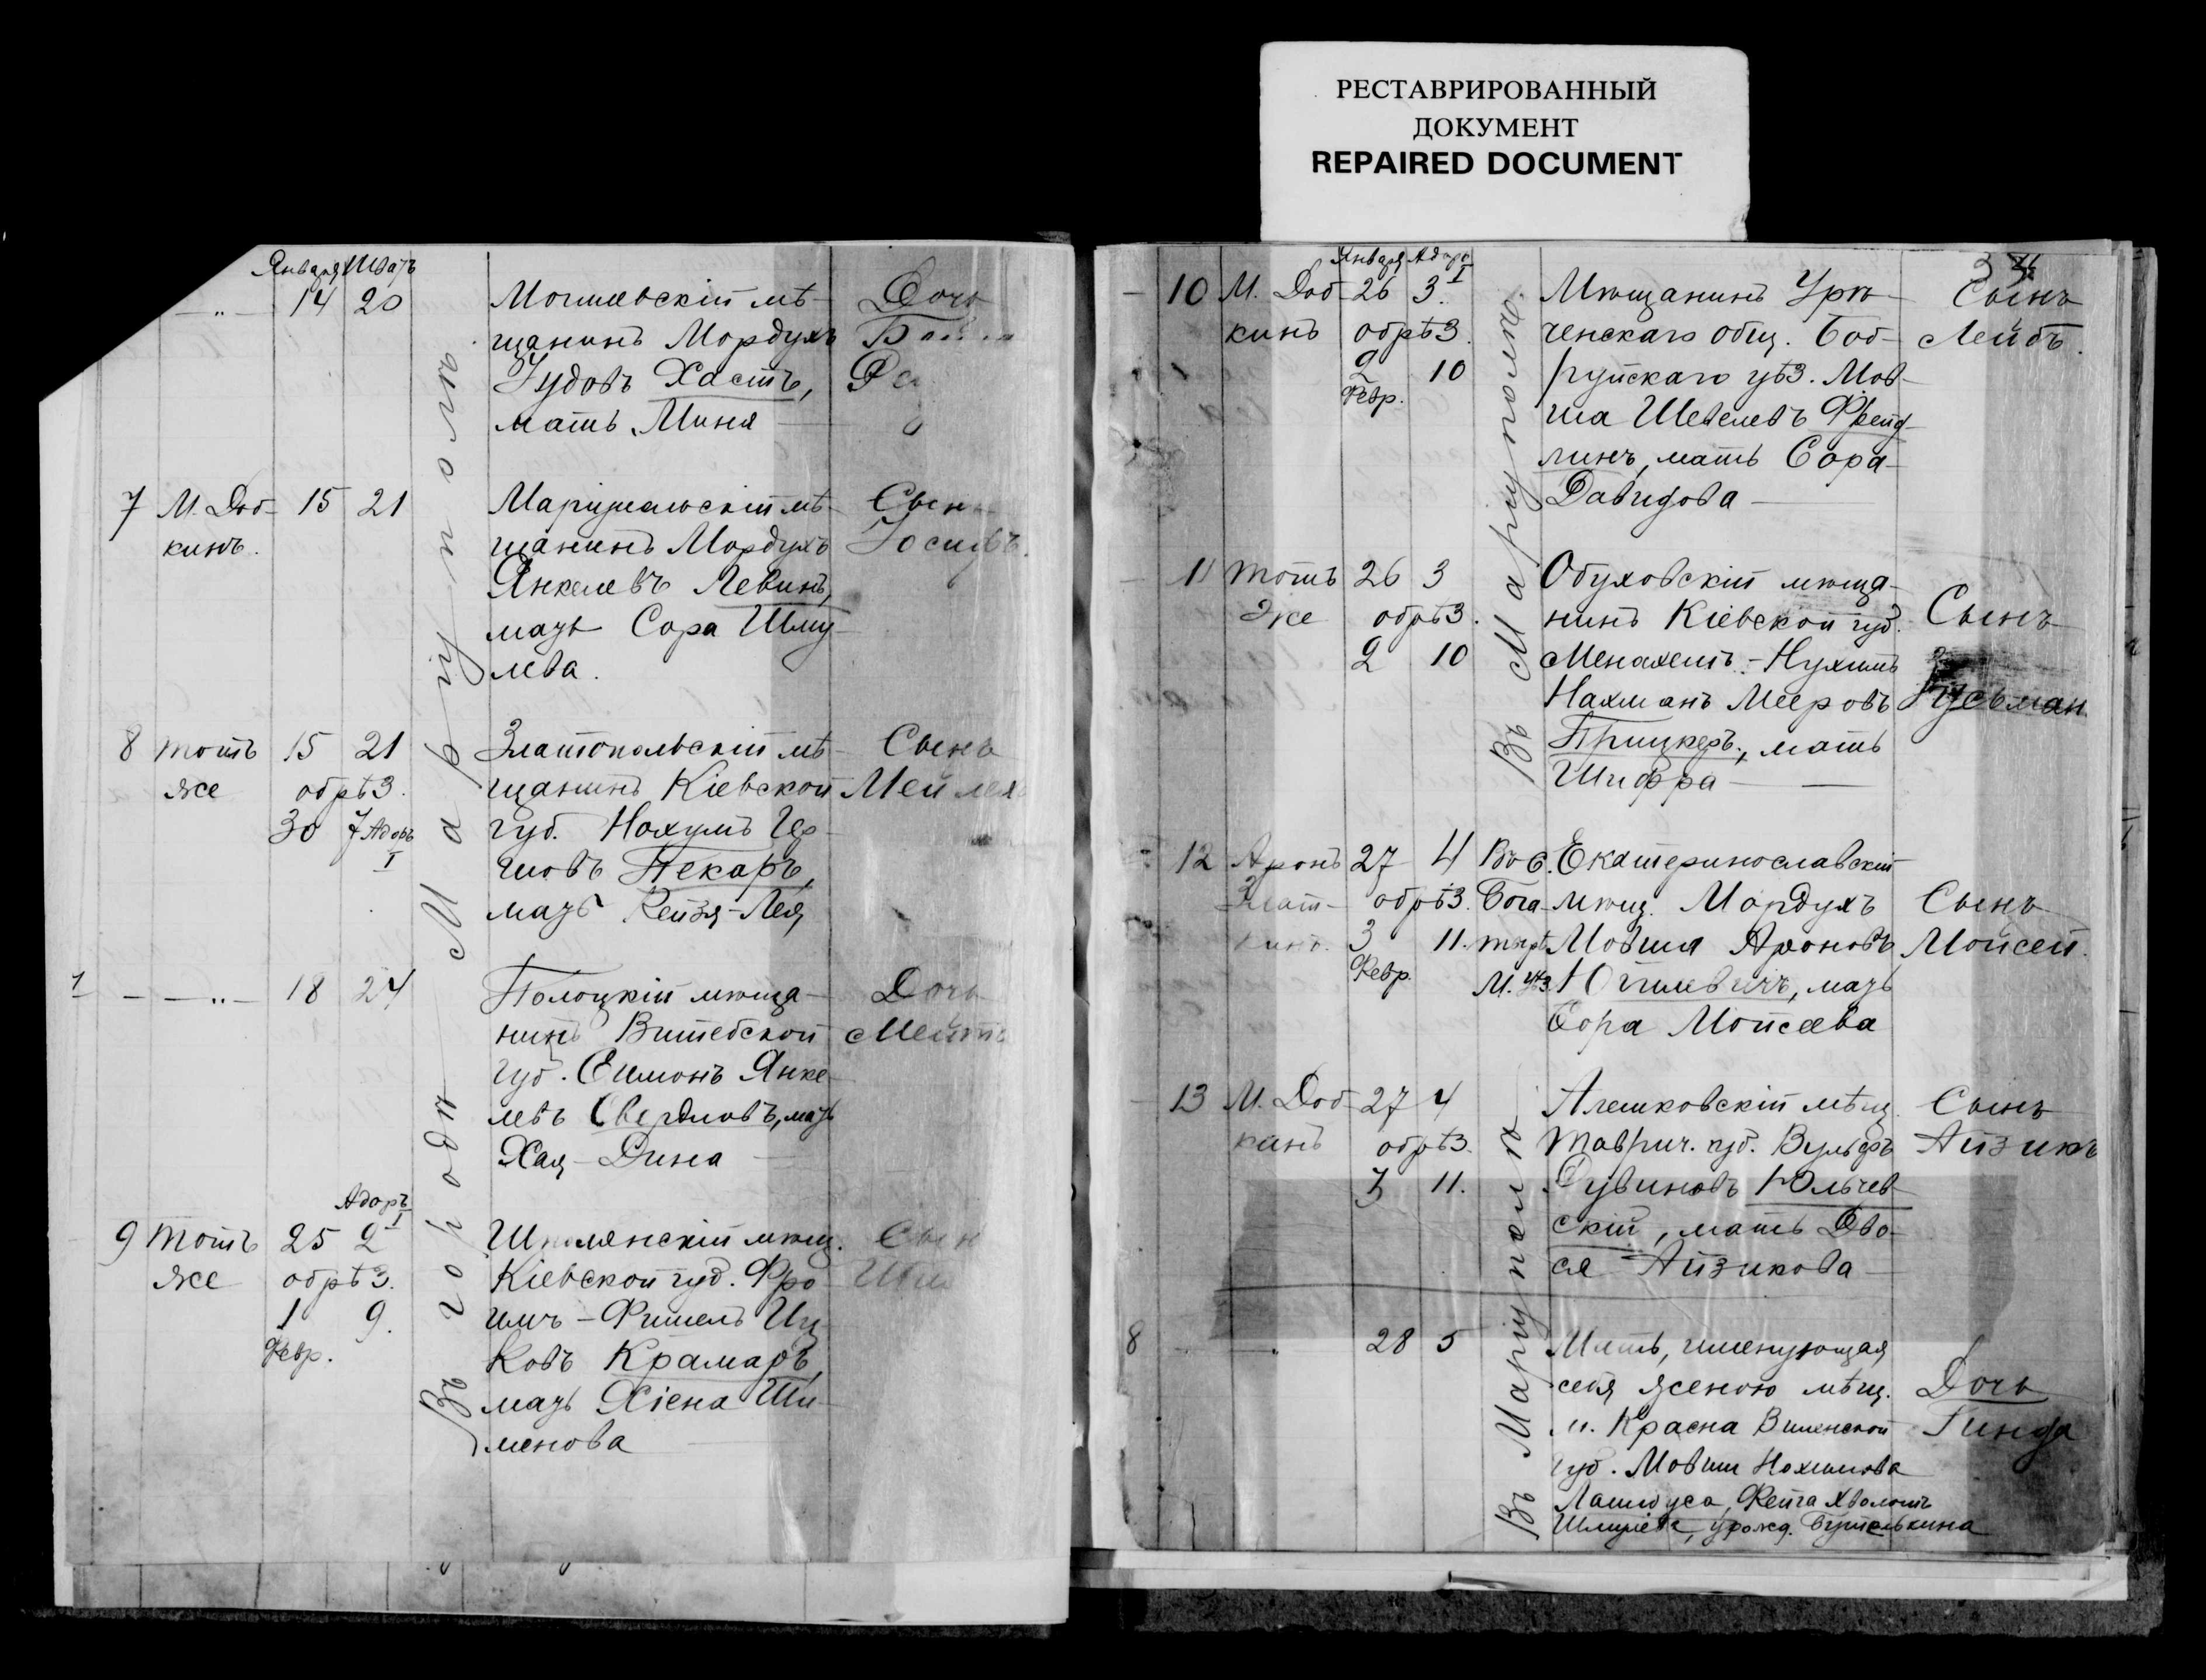 РЕСТАВРИРОВАННЫЙ
ДОКУМЕНТ
REPAIRED DOCUMENT
Января Шватъ
14 20
Могилевскій мѣ-
щанинъ Мордухъ
Юдовъ Хастъ,
мать Миня
Дочь
7 М. Доб-
кинъ.
15 21
Маріупольскій мѣ-
щанинъ Мордухъ
Янкелевъ Левинъ,
мать Сора Шму-
лева.
Сынъ
Іосифъ.
8 тотъ
же
15 21
обрѣз.
30 7 Адаръ
I
Златопольскій мѣ-
щанинъ Кіевской
губ. Нохумъ Гер-
шовъ Пекаръ,
мать Рейзя-Лея
Сынъ
Мейлех
18 24
Полоцкій мѣща-
нинъ Витебской
губ. Симонъ Янке-
левъ Свердловъ, мать
Хая-Дина
Дочь
9 тотъ
же
Адаръ
25 2 I
обрѣз.
1 9.
Февр.
Шполянскій мѣщ.
Кіевской губ. Фро
имъ-Фишель Иц-
ковъ Крамаръ,
мать Хіена Ши-
менова
Сын
Въ городѣ Маріуполѣ.
Января Адаръ
10 М. Доб-
кинъ
26 3. I
обрѣз.
2 10
Февр.
Мѣщанинъ Урѣ-
ченскаго общ. Боб-
руйскаго уѣз. Мов-
ша Шевелевъ Фрейд-
линъ, мать Сора
Давидова
Сынъ
Лейбъ.
11 тотъ
же
26 3
обрѣз.
2 10
Обуховскій мѣща-
нинъ Кіевской губ.
Менахемъ-Нухимъ
Нахманъ Мееровъ
Прицкеръ, мать
Шифра
Сынъ
Зусьман
12 Аронъ
Злат-
кинъ.
27 4
обрѣз.
3 11.
Февр.
Въ с.
Бога-
тырѣ
М. уѣз.
Екатеринославскій
мѣщ. Мордухъ
Мовша Ароновъ
Югилевичъ, мать
Сора Мойсеева
Сынъ
Мойсей.
13 М. Доб-
кинъ
27 4
обрѣз.
3 11.
Алешковскій мѣщ.
Таврич. губ. Вульфъ
Рувиновъ Юльчев-
скій, мать Дво-
ся Айзикова
Сынъ
Айзикъ
8
28 5
Мать, именующая
себя женою мѣщ.
м. Красна Виленской
губ. Мовши Нохимова
Хволошъ
Шмулева, урожд. Бутелькина
Дочь
Гинда
Въ Маріуполѣ.
Въ Маріуполѣ